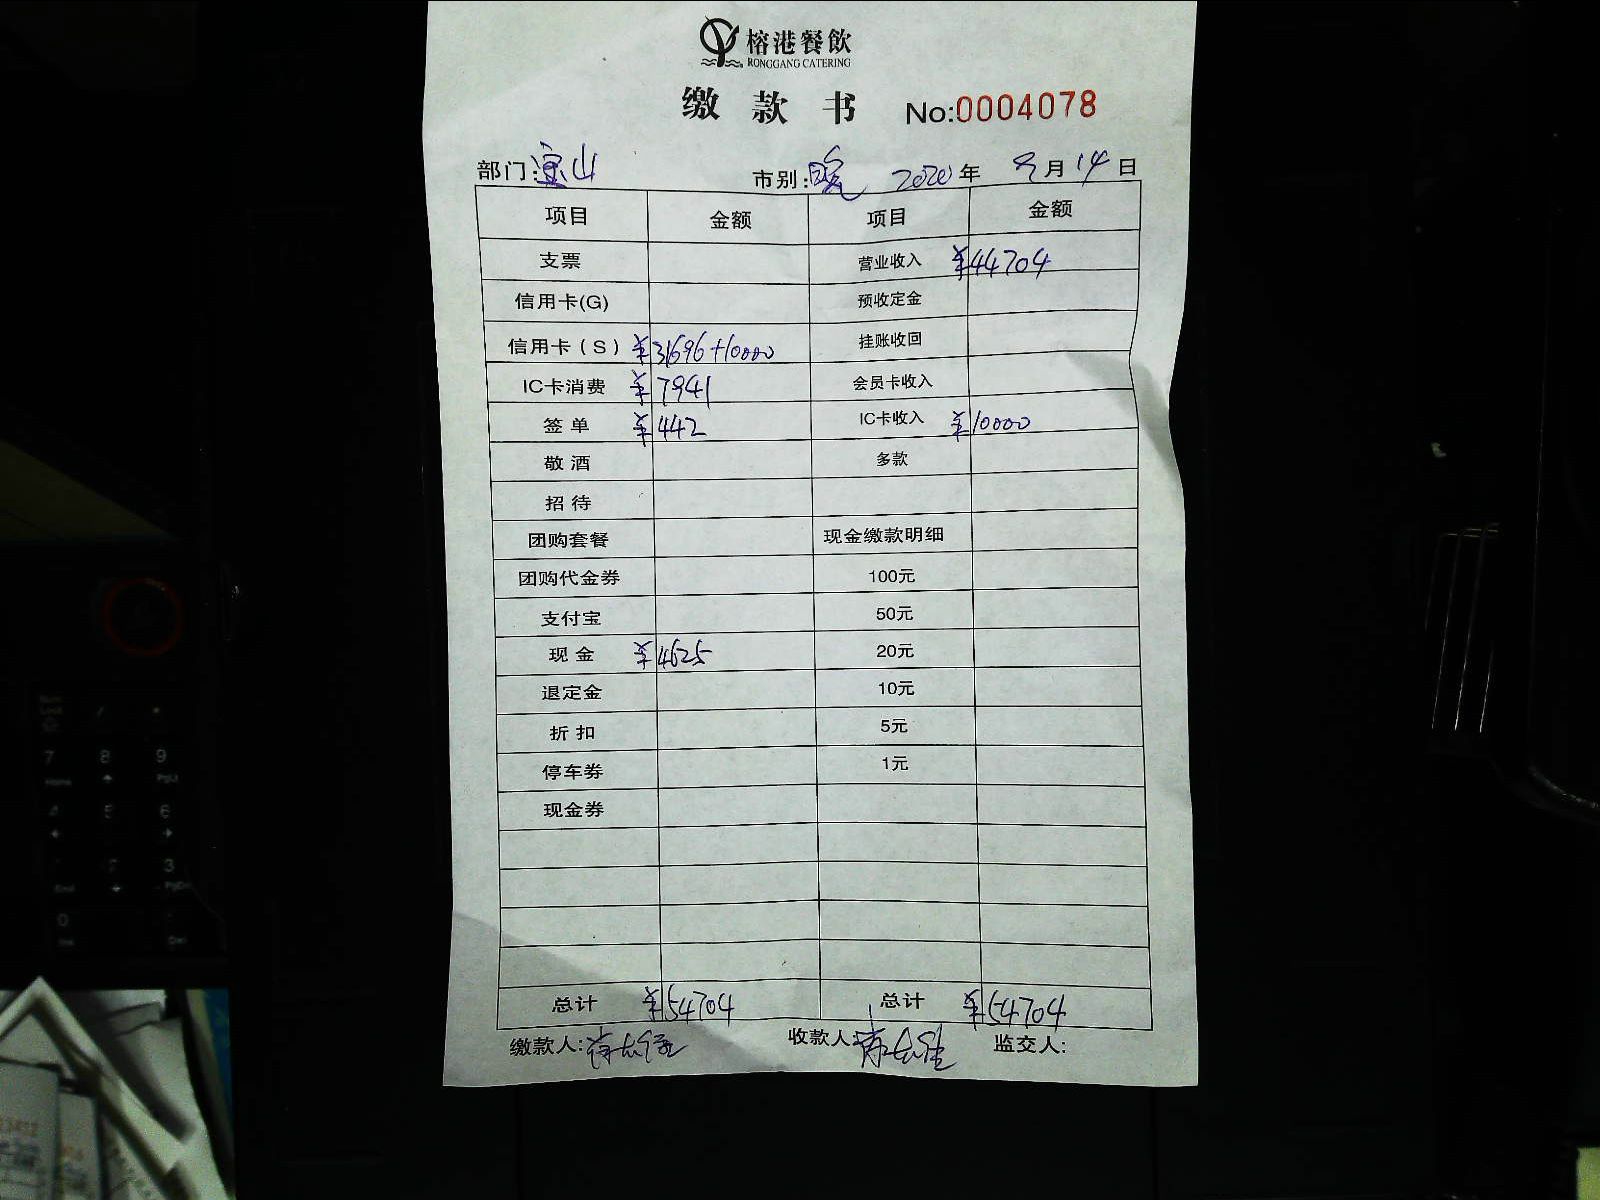 榕港餐飲
RONGGANG CATERING
缴款书 No:0004078
部门:宝山 市别:晚 2020年 9月14日
项目 金额 项目 金额
支票 营业收入 ¥44704
信用卡(G) 预收定金
信用卡(S) ¥31696+10000 挂账收回
IC卡消费 ¥7941 会员卡收入
签单 ¥442 IC卡收入 ¥10000
敬酒 多款
招待
团购套餐 现金缴款明细
团购代金券 100元
支付宝 50元
现金 ¥4625 20元
退定金 10元
折扣 5元
停车券 1元
现金券
总计 ¥54704 总计 ¥54704
缴款人: 收款人: 监交人: